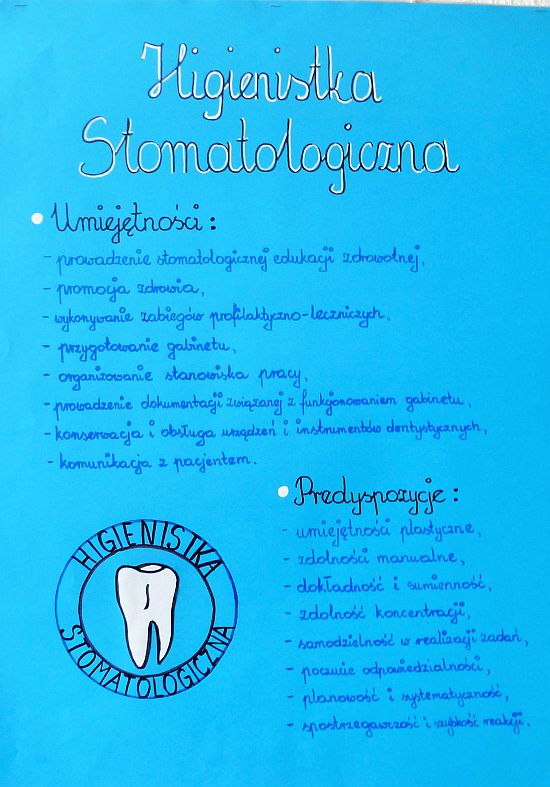 Higienistka
Stomatologiczna
Umiejętności:
- prowadzenie stomatologicznej edukacji zdrowotnej,
- promocja zdrowia,
- wykonywanie zabiegów profilaktyczno-leczniczych,
- przygotowanie gabinetu,
- organizowanie stanowiska pracy,
- prowadzenie dokumentacji związanej z funkcjonowaniem gabinetu,
- konserwacja i obsługa urządzeń i instrumentów dentystycznych,
- komunikacja z pacjentem.
Predyspozycje:
- umiejętności plastyczne,
- zdolności manualne,
- dokładność i sumienność,
- zdolność koncentracji,
- samodzielność w realizacji zadań,
- poczucie odpowiedzialności,
- planowość i systematyczność,
- spostrzegawczość i szybkość reakcji.
HIGIENISTKA
STOMATOLOGICZNA